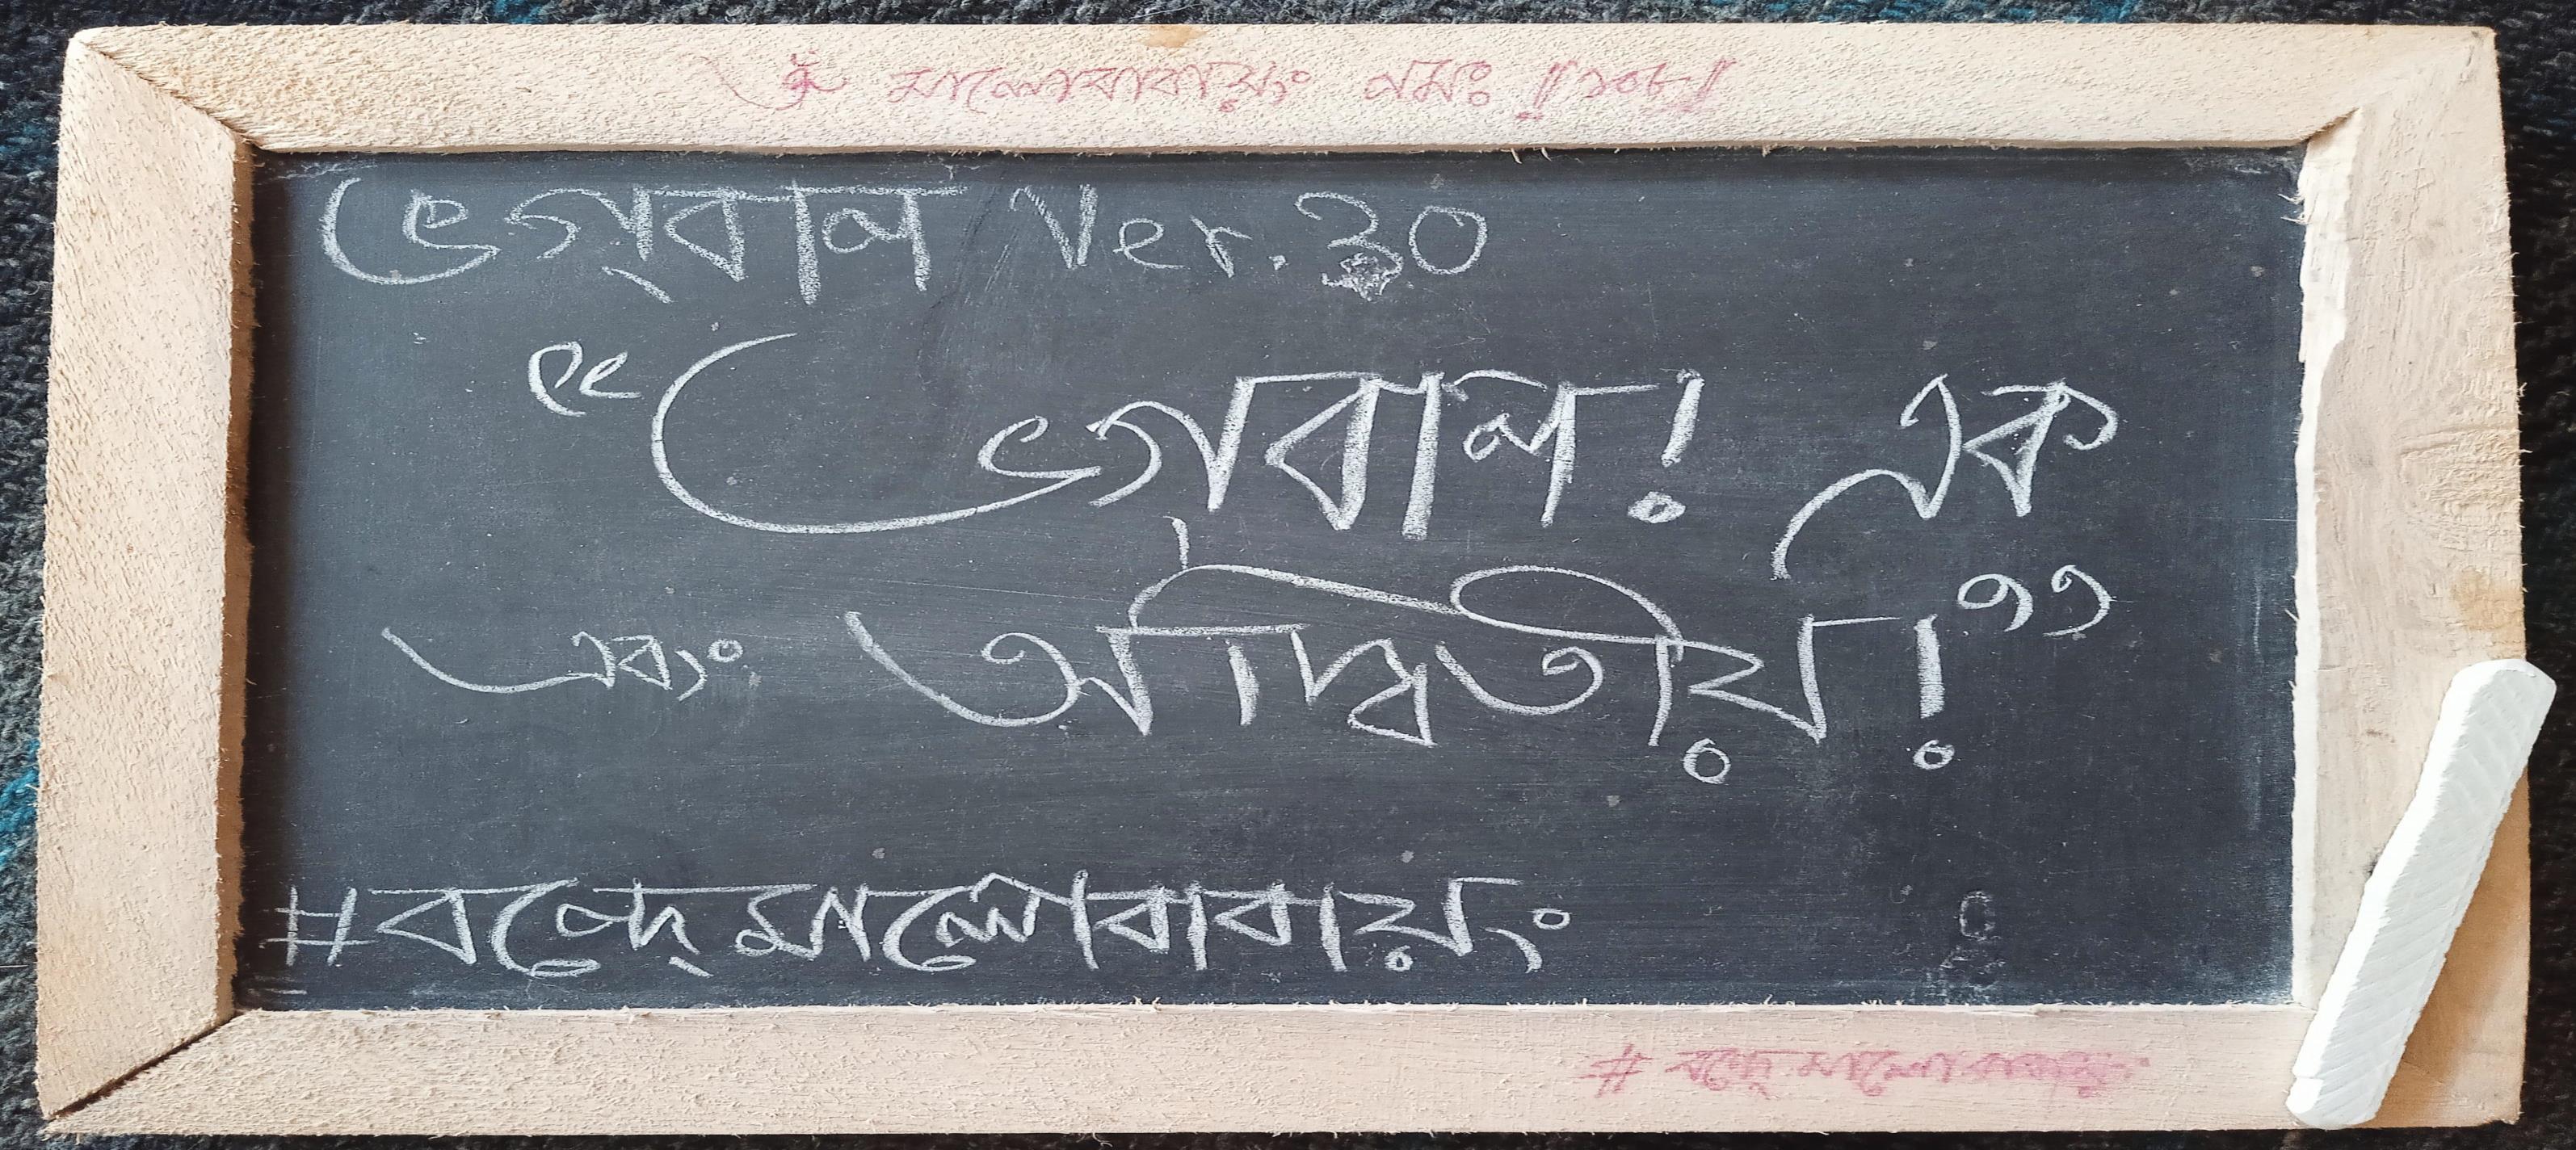 ँ মালোবাবায়ং নমঃ ॥১০৮॥
ভেগ্বান Ver. 30
“ভেগ্বান! এক
এবং অদ্বিতীয়!”
#বন্দে্মালোবাবায়ং
# বন্দে্ মালোবাবায়ং